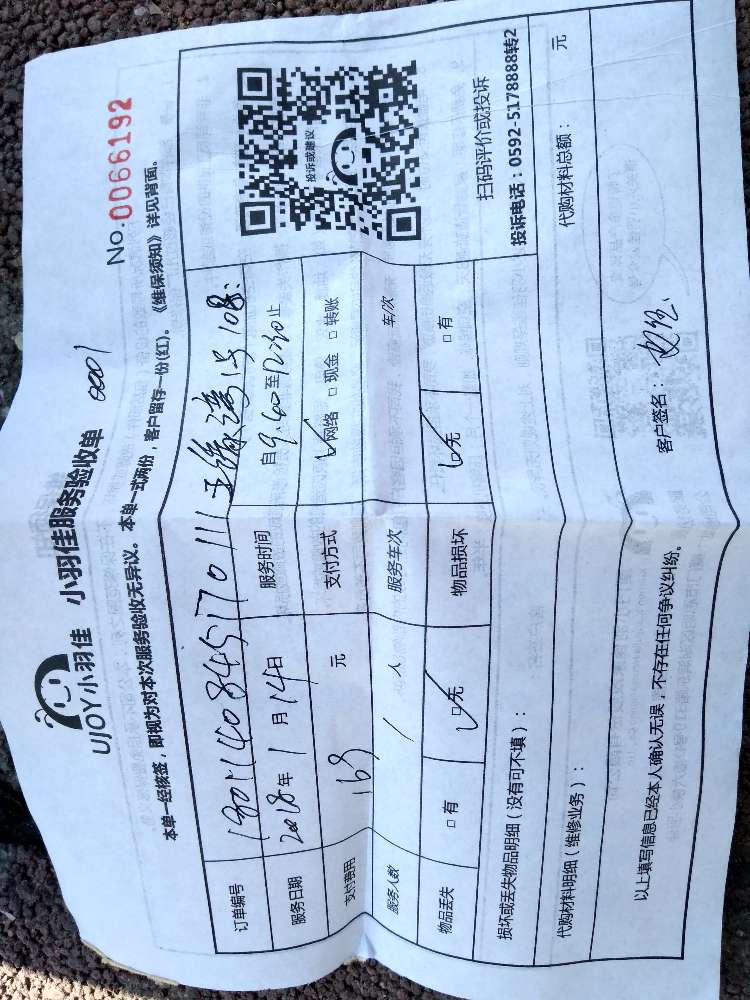 UJOY小羽佳 小羽佳服务验收单 0001
No.0066192
本单一经核签，即视为对本次服务验收无异议。本单一式两份，客户留存一份(红)。《维保须知》详见背面。
订单编号
服务日期 2018年 1月14日 服务时间 自9:40至12:40止
支付费用 168 元 支付方式 网络 □现金 □转账
服务人数 1 人 服务车次 车/次
物品丢失 □有 □无 物品损坏 □无 □有
投诉或建议
扫码评价或投诉
投诉电话：0592-5178888转2
损坏或丢失物品明细（没有可不填）：
代购材料明细（维修业务）： 代购材料总额： 元
以上填写信息已经本人确认无误，不存在任何争议纠纷。 客户签名：